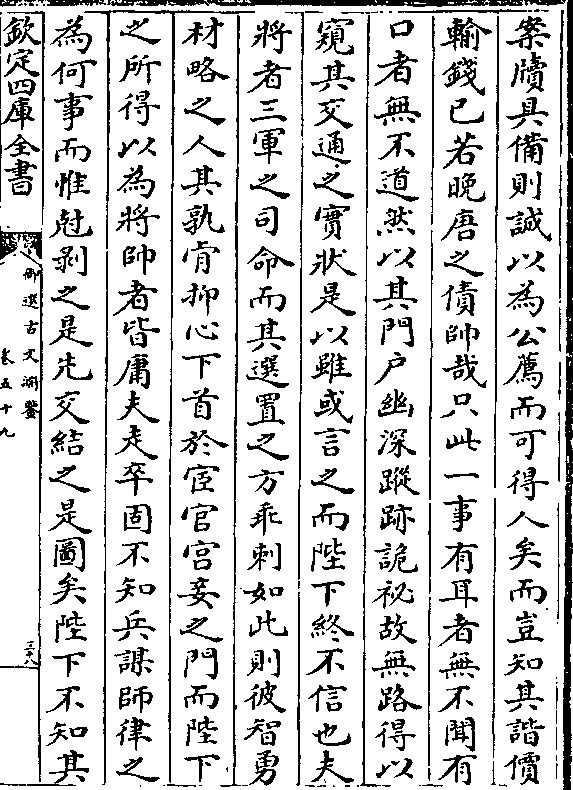 案牘具備則誠以為公薦而可得人矣而豈知其諧價
輸錢已若晚唐之債帥哉只此一事有耳者無不聞有
口者無不道然以其門戶幽深蹤跡詭祕故無路得以
窺其交通之實狀是以雖或言之而陛下終不信也夫
將者三軍之司命而其選置之方乖刺如此則彼智勇
材略之人其孰肯抑心下首於宦官宮妾之門而陛下
之所得以為將帥者皆庸夫走卒固不知兵謀師律之
為何事而惟尅剥之是先交結之是圖矣陛下不知其
欽定四庫全書
御選古文淵鑒
卷五十九
三十八